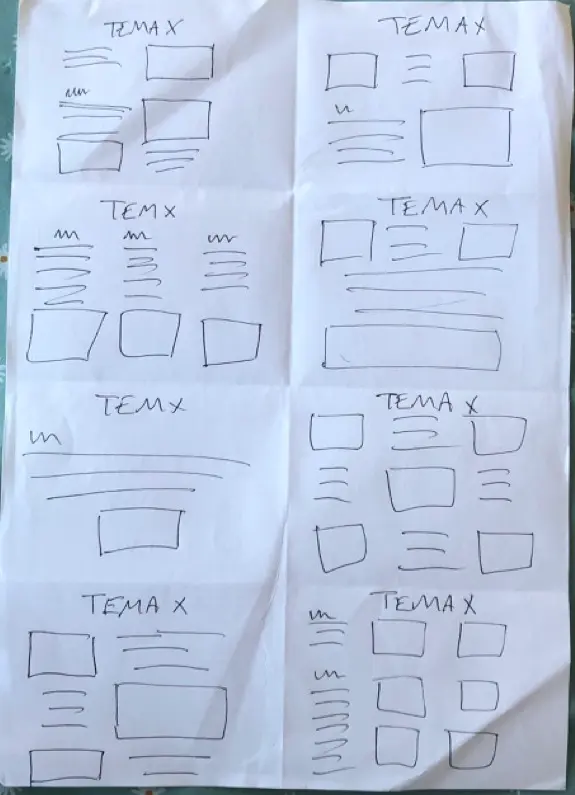 TEMA X
TEMA X
TEMX
TEMA X
TEMX
TEMA X
TEMA X
TEMA X